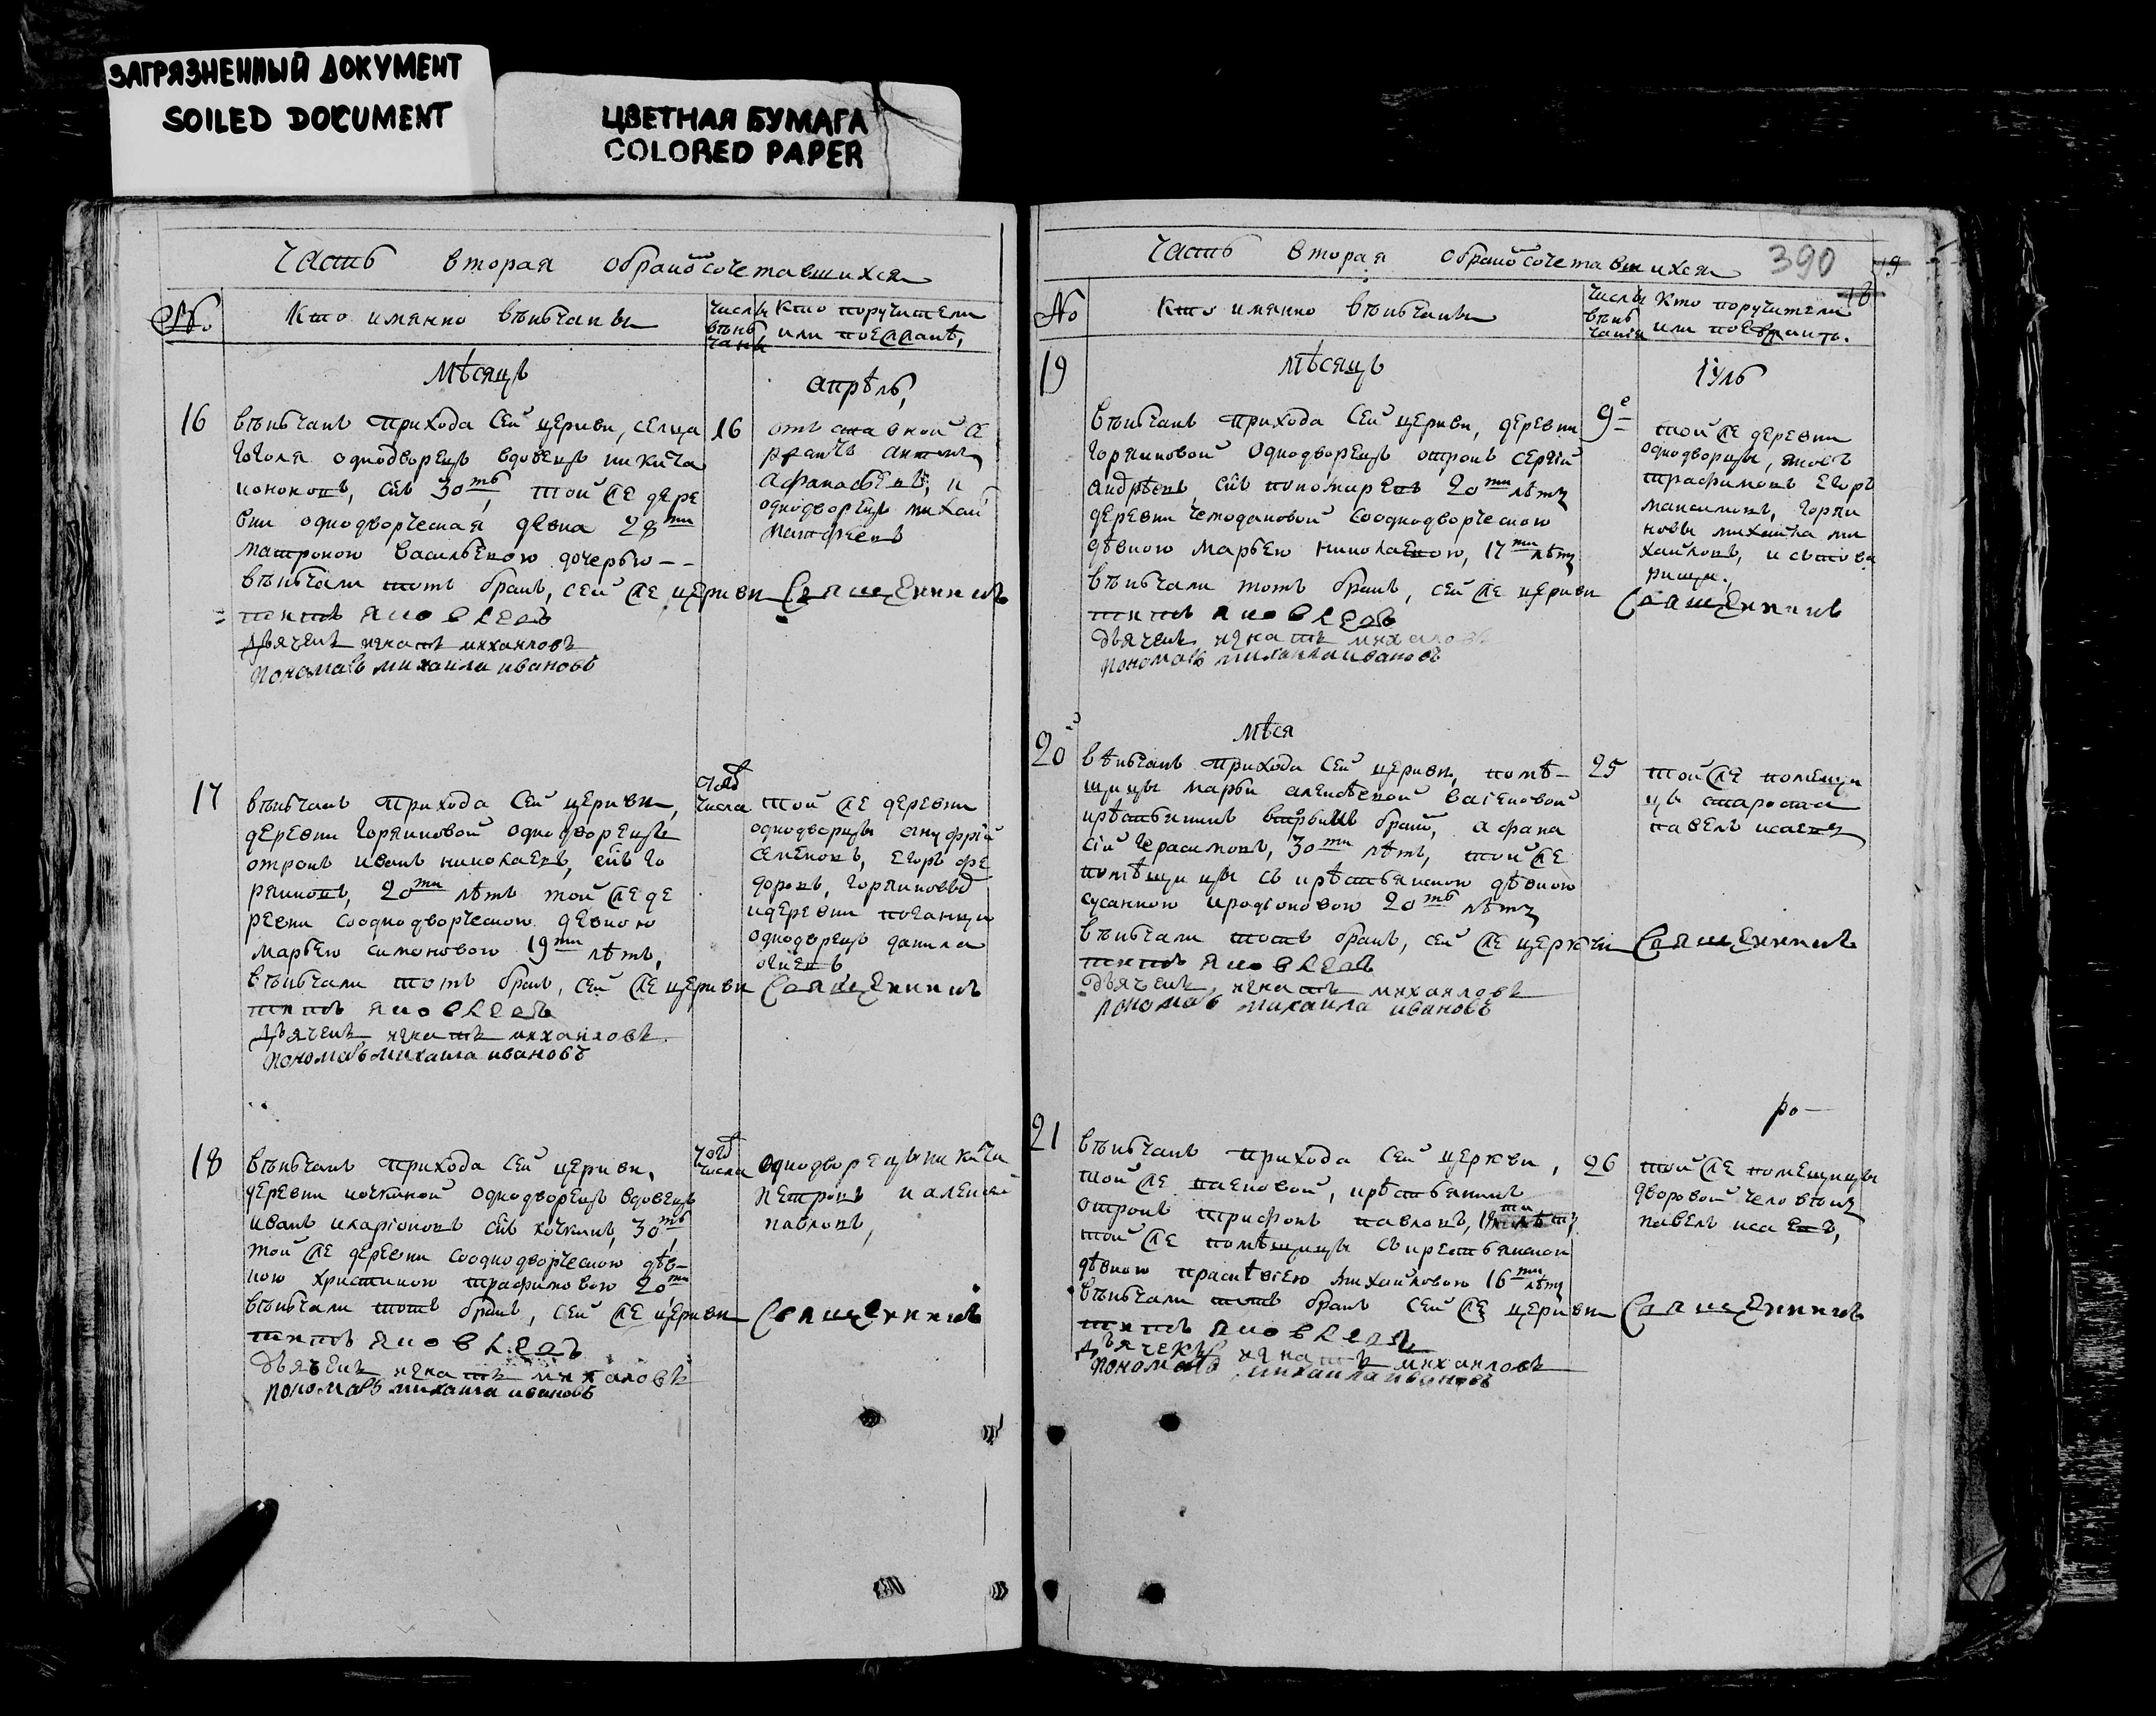 ЗАГРЯЗНЕННЫЙ ДОКУМЕНТ
SOILED DOCUMENT
ЦВЕТНАЯ БУМАГА
COLORED PAPER
Часть вторая о бракосочетавшихся
№
Кто имянно вѣнчаны
Числы
вѣнь
чаны
Кто поручители
или поезжанѣ,
Мѣсяцъ
апрѣль,
16
вѣньчанъ прихода сей церкви, сельца
Гоголя однодворецъ вдовецъ никита
сынъ 30ть той же дере
вни однодворческая девка 28ми
матроною васильевою дочерью - -
вѣньчали тотъ бракъ, сей же церкви Священникъ
яковлевъ
дьячекъ игнатъ михаиловъ
пономарь михаила ивановъ
16
отъ
афанасьевъ, и
однодворецъ михай
матфеевъ
17
вѣньчанъ прихода сей церкви,
деревни Горяиновой однодворецъ
отрокъ иванъ николаевъ, сынъ го
ряиновъ, 20ти лѣтъ той же де
ревни сооднодворческою девкою
марьею симоновою 19ти лѣтъ,
вѣньчали тотъ бракъ, сей же церкви Священникъ
яковлевъ
дьячекъ игнатъ михаиловъ
пономарь михаила ивановъ
тогожъ
числа
той же деревни
однодворцы ануфрій
семеновъ, егоръ фе
доровъ, горяиновы
и деревни
однодворецъ данила
18
вѣньчанъ прихода сей церкви,
деревни кочкиной однодворецъ вдовецъ
иванъ иларіоновъ сынъ кочкинъ, 30ть,
той же деревни сооднодворческою дѣв-
кою христиною трафимовою 20ти
вѣньчали тотъ бракъ, сей же церкви Священникъ
яковлевъ
дьячекъ игнатъ михаиловъ
пономарь михаила ивановъ
тогожъ
числа
Однодворецъ никита
петровъ и алексей
павловъ,
Часть вторая о бракосочетавшихся
390
19
18
№
Кто имянно вѣньчаны
Числы
вѣнь
чанія
Кто поручители
или поезжанъ.
19
Мѣсяцъ
іуль
вѣньчанъ прихода сей церкви, деревни
горяиновой однодворецъ отрокъ сергій
андрѣевъ, сынъ 20ти лѣтъ
деревни чемодановой сооднодворческою
дѣвкою марьею николаевою, 17ти лѣтъ
вѣньчали тотъ бракъ, сей же церкви Священникъ
яковлевъ
дьячекъ игнатъ михаиловъ
пономарь михаила ивановъ
9е
той же деревни
однодворцы, яковъ
трафимовъ егоръ
максимовъ, горяи
новы михайла ми
хайловъ, и съ това
рищи.
Мѣся
20й
вѣньчанъ прихода сей церкви, помѣ-
щицы марьи алексѣевной
крѣстьянинъ бракъ, афана
сій герасимовъ, 30ти лѣтъ, той же
помѣщицы съ крѣстьянскою дѣвкою
сусанною иродіоновою 20ть лѣтъ
вѣньчали тотъ бракъ, сей же церкви Священникъ
яковлевъ
дьячекъ игнатъ михаиловъ
пономарь михаила ивановъ
25
той же помещи
цы староста
павелъ исаевъ
ро-
21
вѣньчанъ прихода сей церкви,
той же крѣстьянинъ
отрокъ трифонъ павловъ,
той же помѣщицы съ крестьянскою
дѣвкою праскѣвіею михайловою 16ти лѣтъ
вѣньчали тотъ бракъ сей же церкви Священникъ
яковлевъ
дьячекъ игнатъ михаиловъ
пономарь михаила ивановъ
26
той же помещицы
дворовой человѣкъ
павелъ исаевъ,